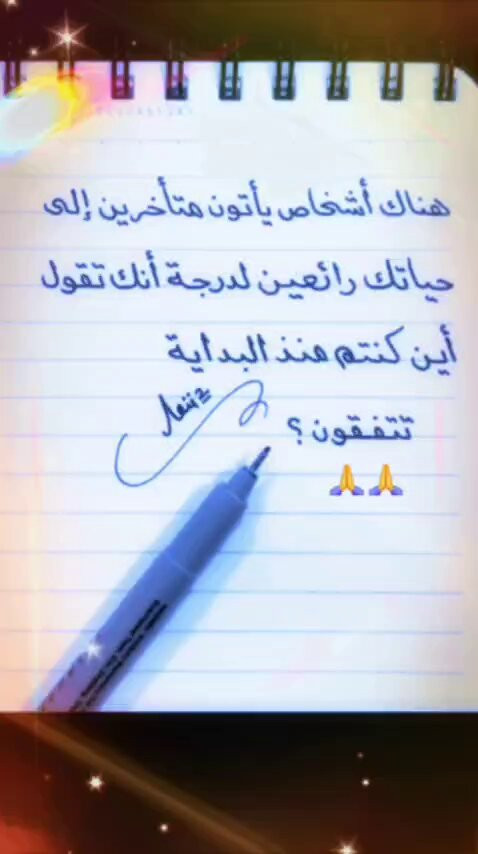 هناك أشخاص يأتون متأخرين إلى
حياتك رائعين لدرجة أنك تقول
أين كنتم منذ البداية
تتفقون؟
🙏🙏